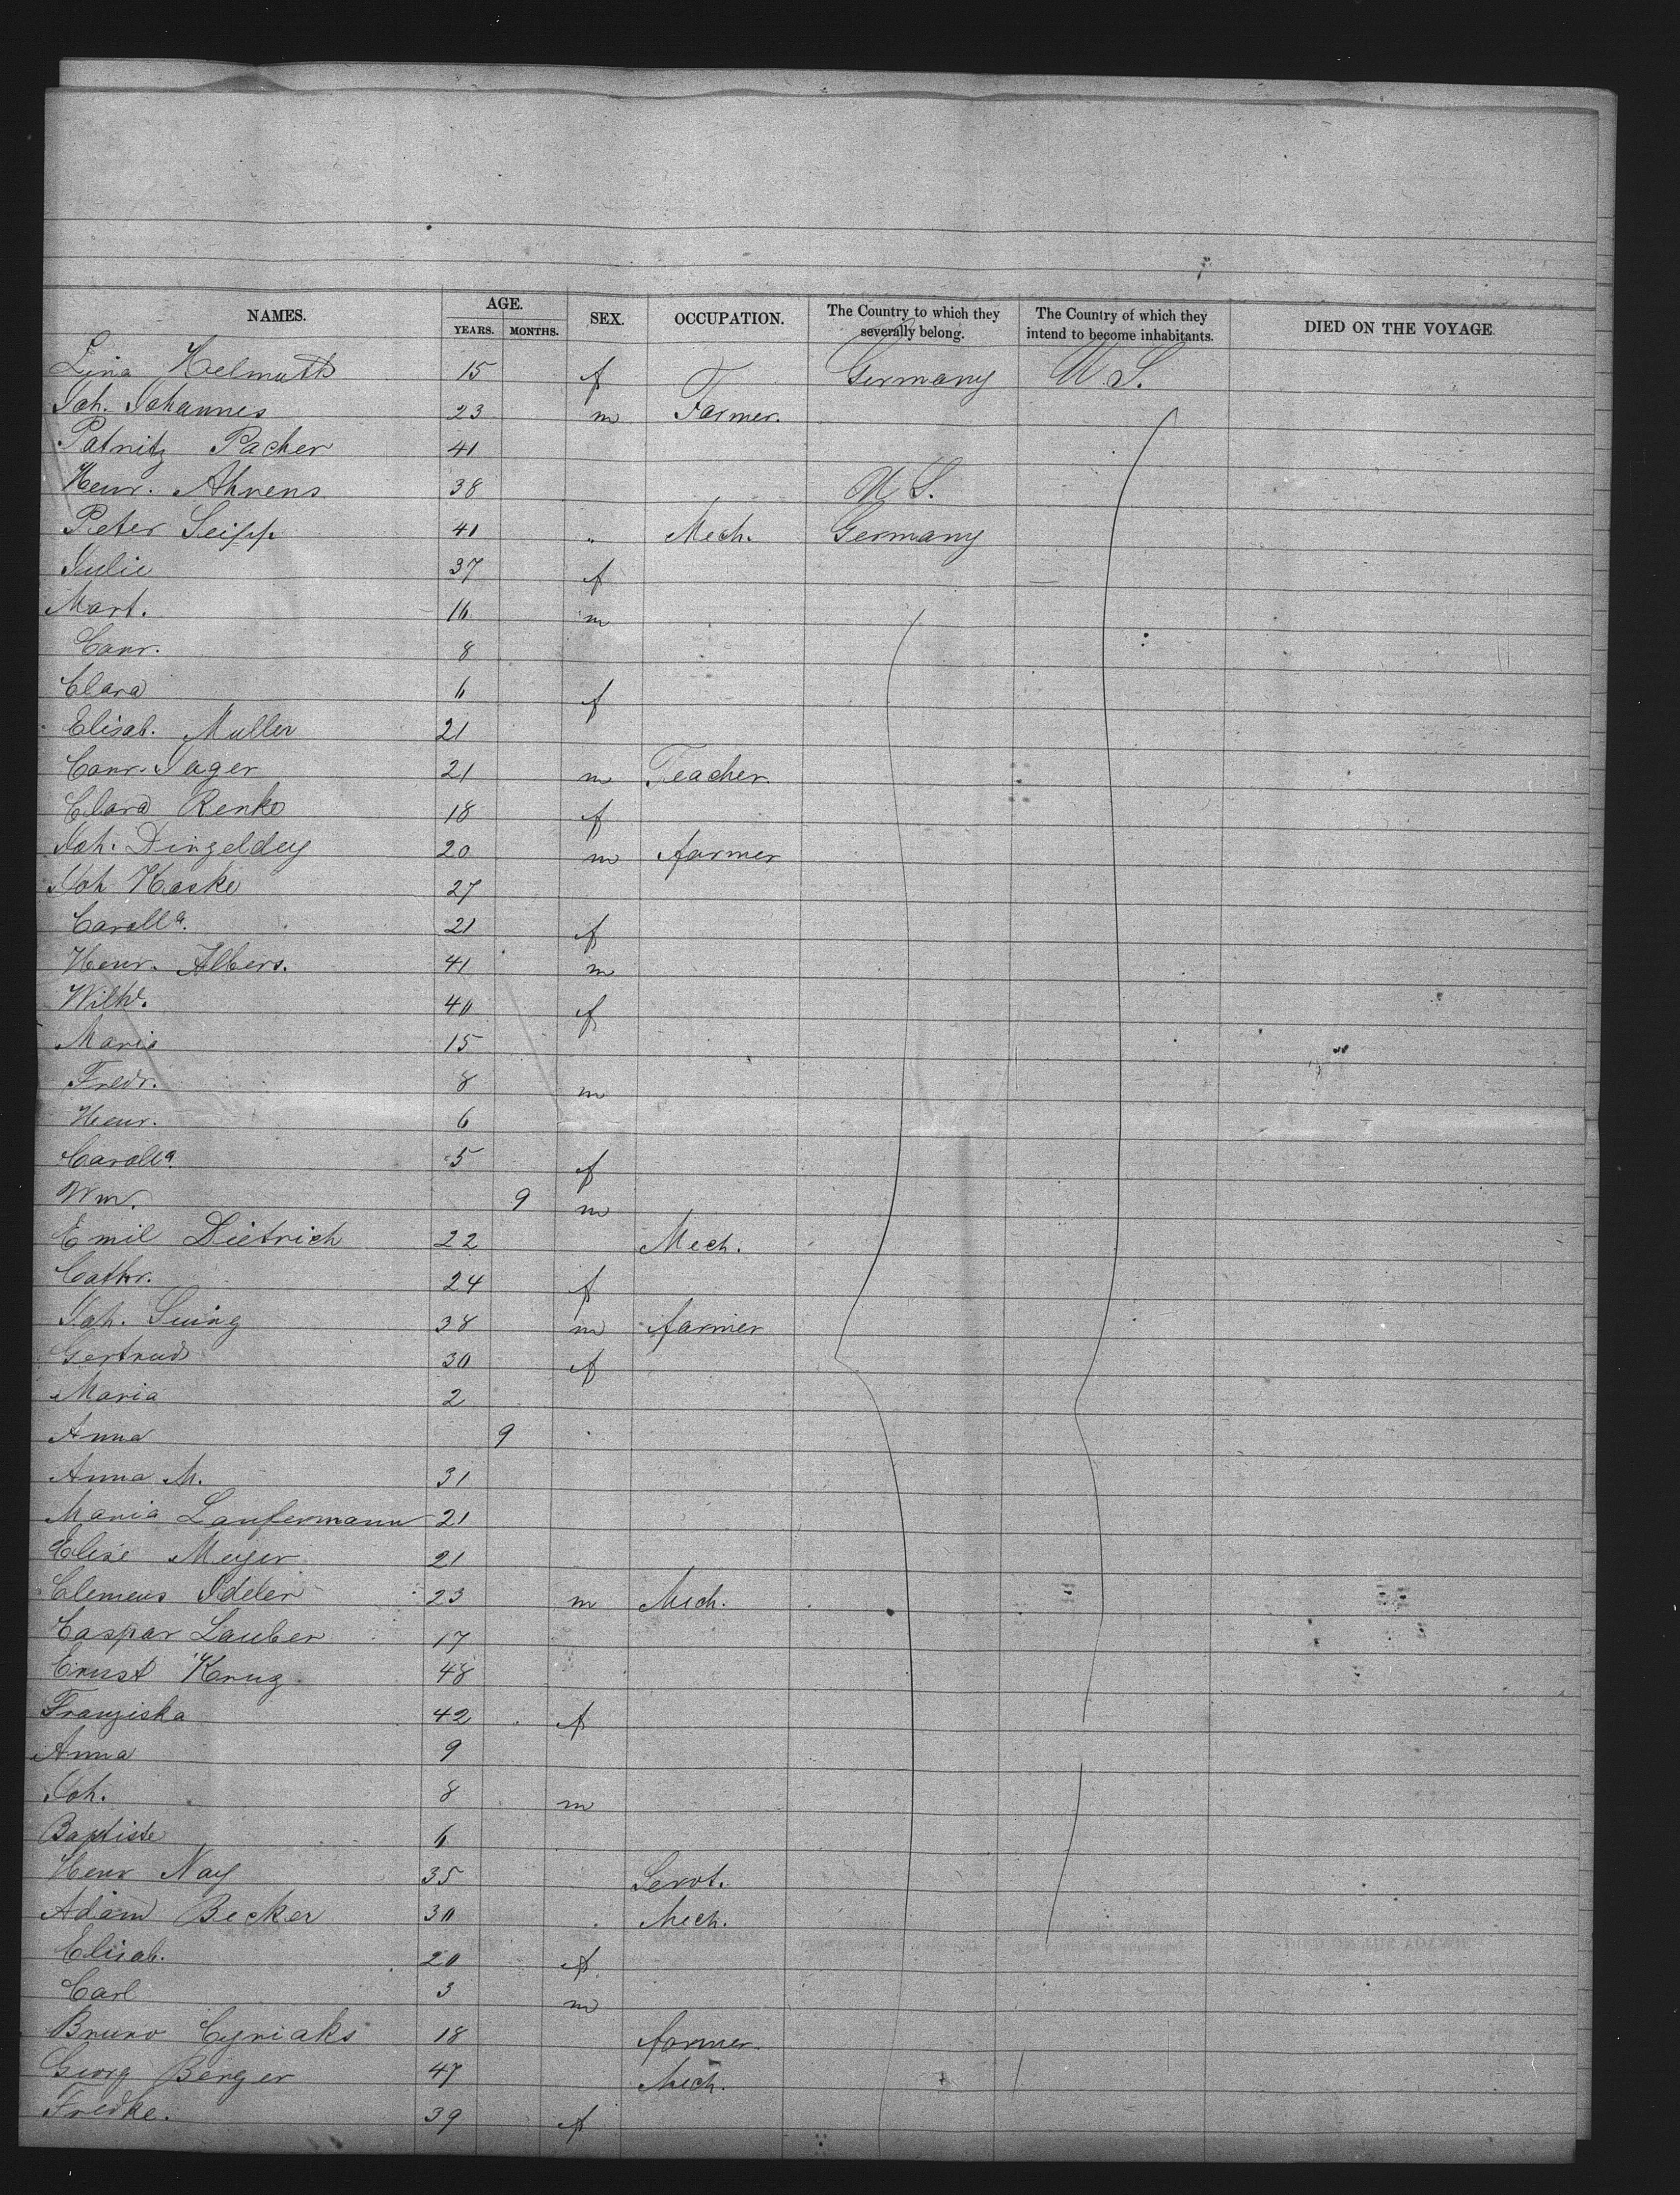 NAMES. AGE. SEX. OCCUPATION. The Country to which they severally belong. The Country of which they intend to become inhabitants. DIED ON THE VOYAGE
YEARS. MONTHS.
Lina Helmuth 15 f Germany U.S.
Joh. Johannes 23 m Farmer.
Patnitz Pacher 41
Henr. Ahrens 38 U S.
Peter Seipp 41 " Mech. Germany
Julie 37 f
Mart. 16 m
Conr. 8
Clara 6 f
Elisab. Muller 21
Conr. Jager 21 m Teacher.
Clara Renke 18 f
Joh. Dingeldey 20 m farmer
Joh Haske 27
Carolla. 21 f
Henr. Albers. 41 m
Wilhe. 40 f
Maria 15
Fredr. 8 m
Henr. 6
Carolla. 5 f
Wm. 9 m
Emil Dietrich 22 Mech.
Cathr. 24 f
Joh. Suing 38 m farmer
Gertrud 30 f
Maria 2
Anna 9
Anna M. 31
Maria Laufermann 21
Elise Meyer 21
Clemens Ideler 23 m Mech.
Caspar Lauber 17
Ernst Krug 48
Franziska 42 f
Anna 9
Joh. 8 m
Baptiste 6
Henr Nay 35 Servt.
Adam Becker 30 Mech.
Elisab. 20 f
Carl 3 m
Bruno Cyriaks 18 farmer
Georg Berger 47 Mech.
Fredke. 39 f